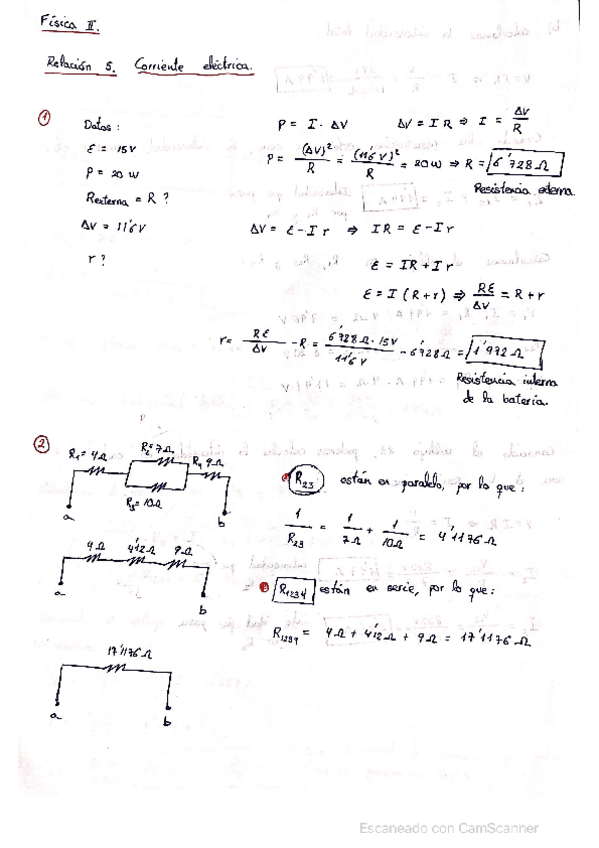 Física II.
Relación 5. Corriente eléctrica.
①
Datos:
ε = 15V
P = 20 W
Rexterna = R ?
ΔV = 11'6V
r?
P = I · ΔV    ΔV = I R ⇒ I = ΔV/R
P = (ΔV)²/R = (11'6 V)²/R = 20 W ⇒ R = 6'728 Ω
Resistencia externa.
ΔV = ε - I r ⇒ IR = ε - I r
ε = IR + I r
ε = I (R + r) ⇒ Rε/ΔV = R + r
r = Rε/ΔV - R = 6'728 Ω · 15V/11'6 V - 6'728 Ω = 1'972 Ω
Resistencia interna
de la batería.
②
R₁ = 4Ω
R₂ = 7Ω
R₄ 9Ω
R₃ = 10Ω
a
b
R₂₃ están en paralelo, por lo que:
1/R₂₃ = 1/7Ω + 1/10Ω = 4'1176Ω
4Ω 4'12Ω 9Ω
a
b
R₁₂₃₄ están en serie, por lo que:
R₁₂₃₄ = 4Ω + 4'12Ω + 9Ω = 17'1176Ω
17'1176Ω
a
b
Escaneado con CamScanner